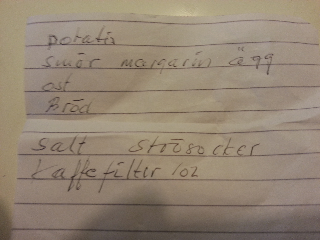 potatis
smör margarin ägg
ost
Bröd
salt strösocker
Kaffefilter 102